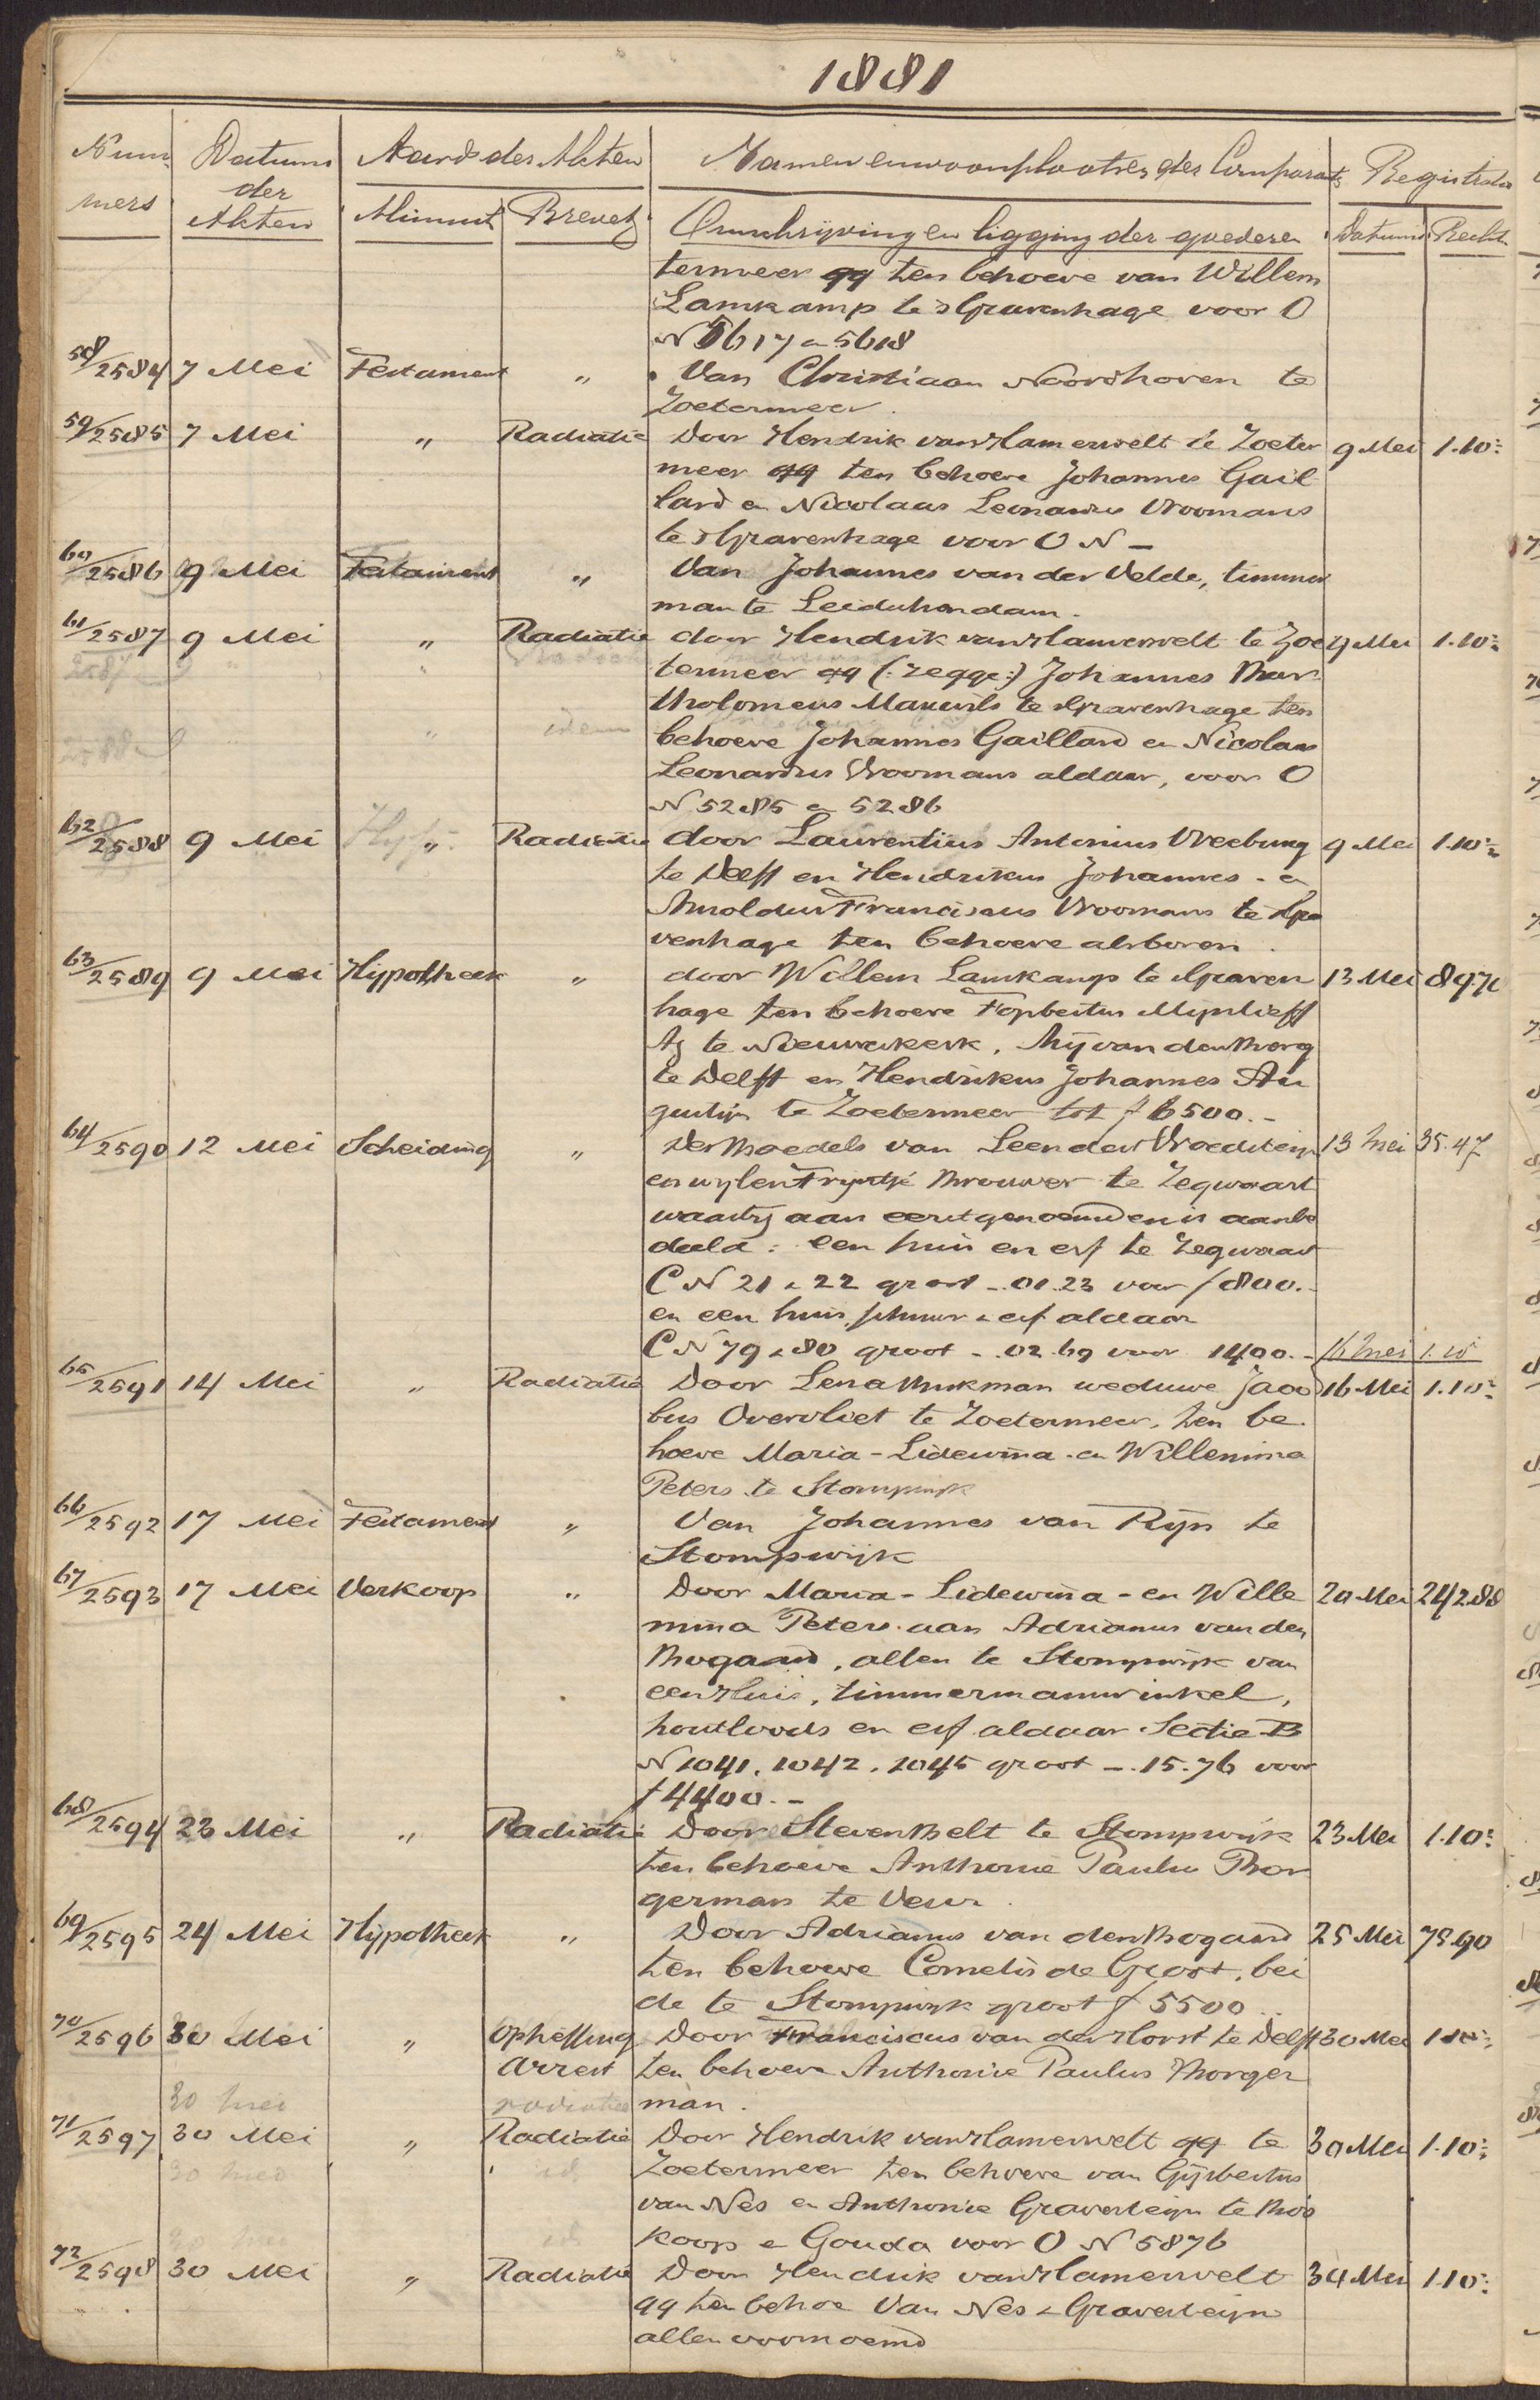 1881
Num Datums Aard des Akten Namen en woonplaatsen der Comparats Registratie
mers der Akten Minuut Brevet Omschrijving en ligging der goederen Datums Recht
termeer qq ten behoeve van Willem
Lamkamp te sGravenhage voor O
N 5617 en 5618
58/2584 7 Mei Testament " Van Christiaan Noordhoven te
Zoetermeer.
59/2585 7 Mei " Radiatie Door Hendrik van Hamerwelt te Zoeter 9 Mei 1.10
meer qq ten behoeve Johannes Gail
lard en Nicolaas Leonardus Vroomans
te sGravenhage voor O N –
60/2586 9 Mei Testament " Van Johannes van der Velde, timmer
man te Leidschendam.
61/2587 9 Mei " Radiatie door Hendrik van Hamerwelt te Zoe 9 Mei 1.10
termeer qq (: zegge :) Johannes Bar
tholomeus te sGravenhage ten
behoeve Johannes Gaillard en Nicolaas
Leonardus Vroomans aldaar, voor O
N 5285 en 5286
62/2588 9 Mei " Radiatie door Laurentius Antonius Vreeburg 9 Mei 1.10
te Delft en Hendrikus Johannes - en
Arnoldus Franciscus Vroomans te sGra
venhage ten behoeve alsboven.
63/2589 9 Mei Hypotheek " door Willem Lamkamp te sGraven 13 Mei 89.70
hage ten behoeve Fopbertus Mijnlieff
Az te Nieuwerkerk, van den Berg
te Delft en Hendrikus Johannes Au
gustijn te Zoetermeer tot f 6500.-
64/2590 12 Mei Scheiding " Der Boedels van Leendert Vroedsteijn 13 Mei 35.47
en wylen Trijntje Brouwer te Zegwaart
waarbij aan eerstgenoemden is aanbe
deeld: een huis en erf te Zegwaart
C N 21 en 22 groot -.01.23 voor f 800.-
en een huis, schuur en erf aldaar
C N 79 en 80 groot -.02.69 voor 1400.- 16 Mei 1.10
65/2591 14 Mei " Radiatie Door Lena Buikman weduwe Jaco 16 Mei 1.10
bus Overvliet te Zoetermeer, ten be
hoeve Maria - Lidewina - en Willemina
Peters te Stompwijk
66/2592 17 Mei Testament " Van Johannes van Rijn te
Stompwijk
67/2593 17 Mei Verkoop " Door Maria - Lidewina - en Wille 20 Mei 242.88
mina Peters aan Adrianus van den
Bogaard, allen te Stompwijk van
een Huis, timmermanswinkel,
houtloods en erf aldaar Sectie B
N 1041, 1042, 1045 groot -.15.76 voor
f 4400.-
68/2594 23 Mei " Radiatie Door Steven Belt te Stompwijk 23 Mei 1.10
ten behoeve Anthonie Paulus Bor
german te Veur.
69/2595 24 Mei Hypotheek " Door Adrianus van den Bogaard 25 Mei 75.90
ten behoeve Cornelis de Groot, bei
de te Stompwijk groot f 5500.
70/2596 30 Mei " Opheffing Door Franciscus van der Horst te Delft 30 Mei 1.10
Arrest ten behoeve Anthonie Paulus Borger
30 Mei radiatie man.
71/2597 30 Mei " Radiatie Door Hendrik van Hamerwelt qq te 30 Mei 1.10
30 Mei id Zoetermeer ten behoeve van Gijsbertus
van Nes en Anthonie Gravesteijn te Bos
koop en Gouda voor O N 5876
72/2598 30 Mei " Radiatie Door Hendrik van Hamerwelt 30 Mei 1.10
qq ten behoe Van Nes en Gravesteijn
allen voornoemd